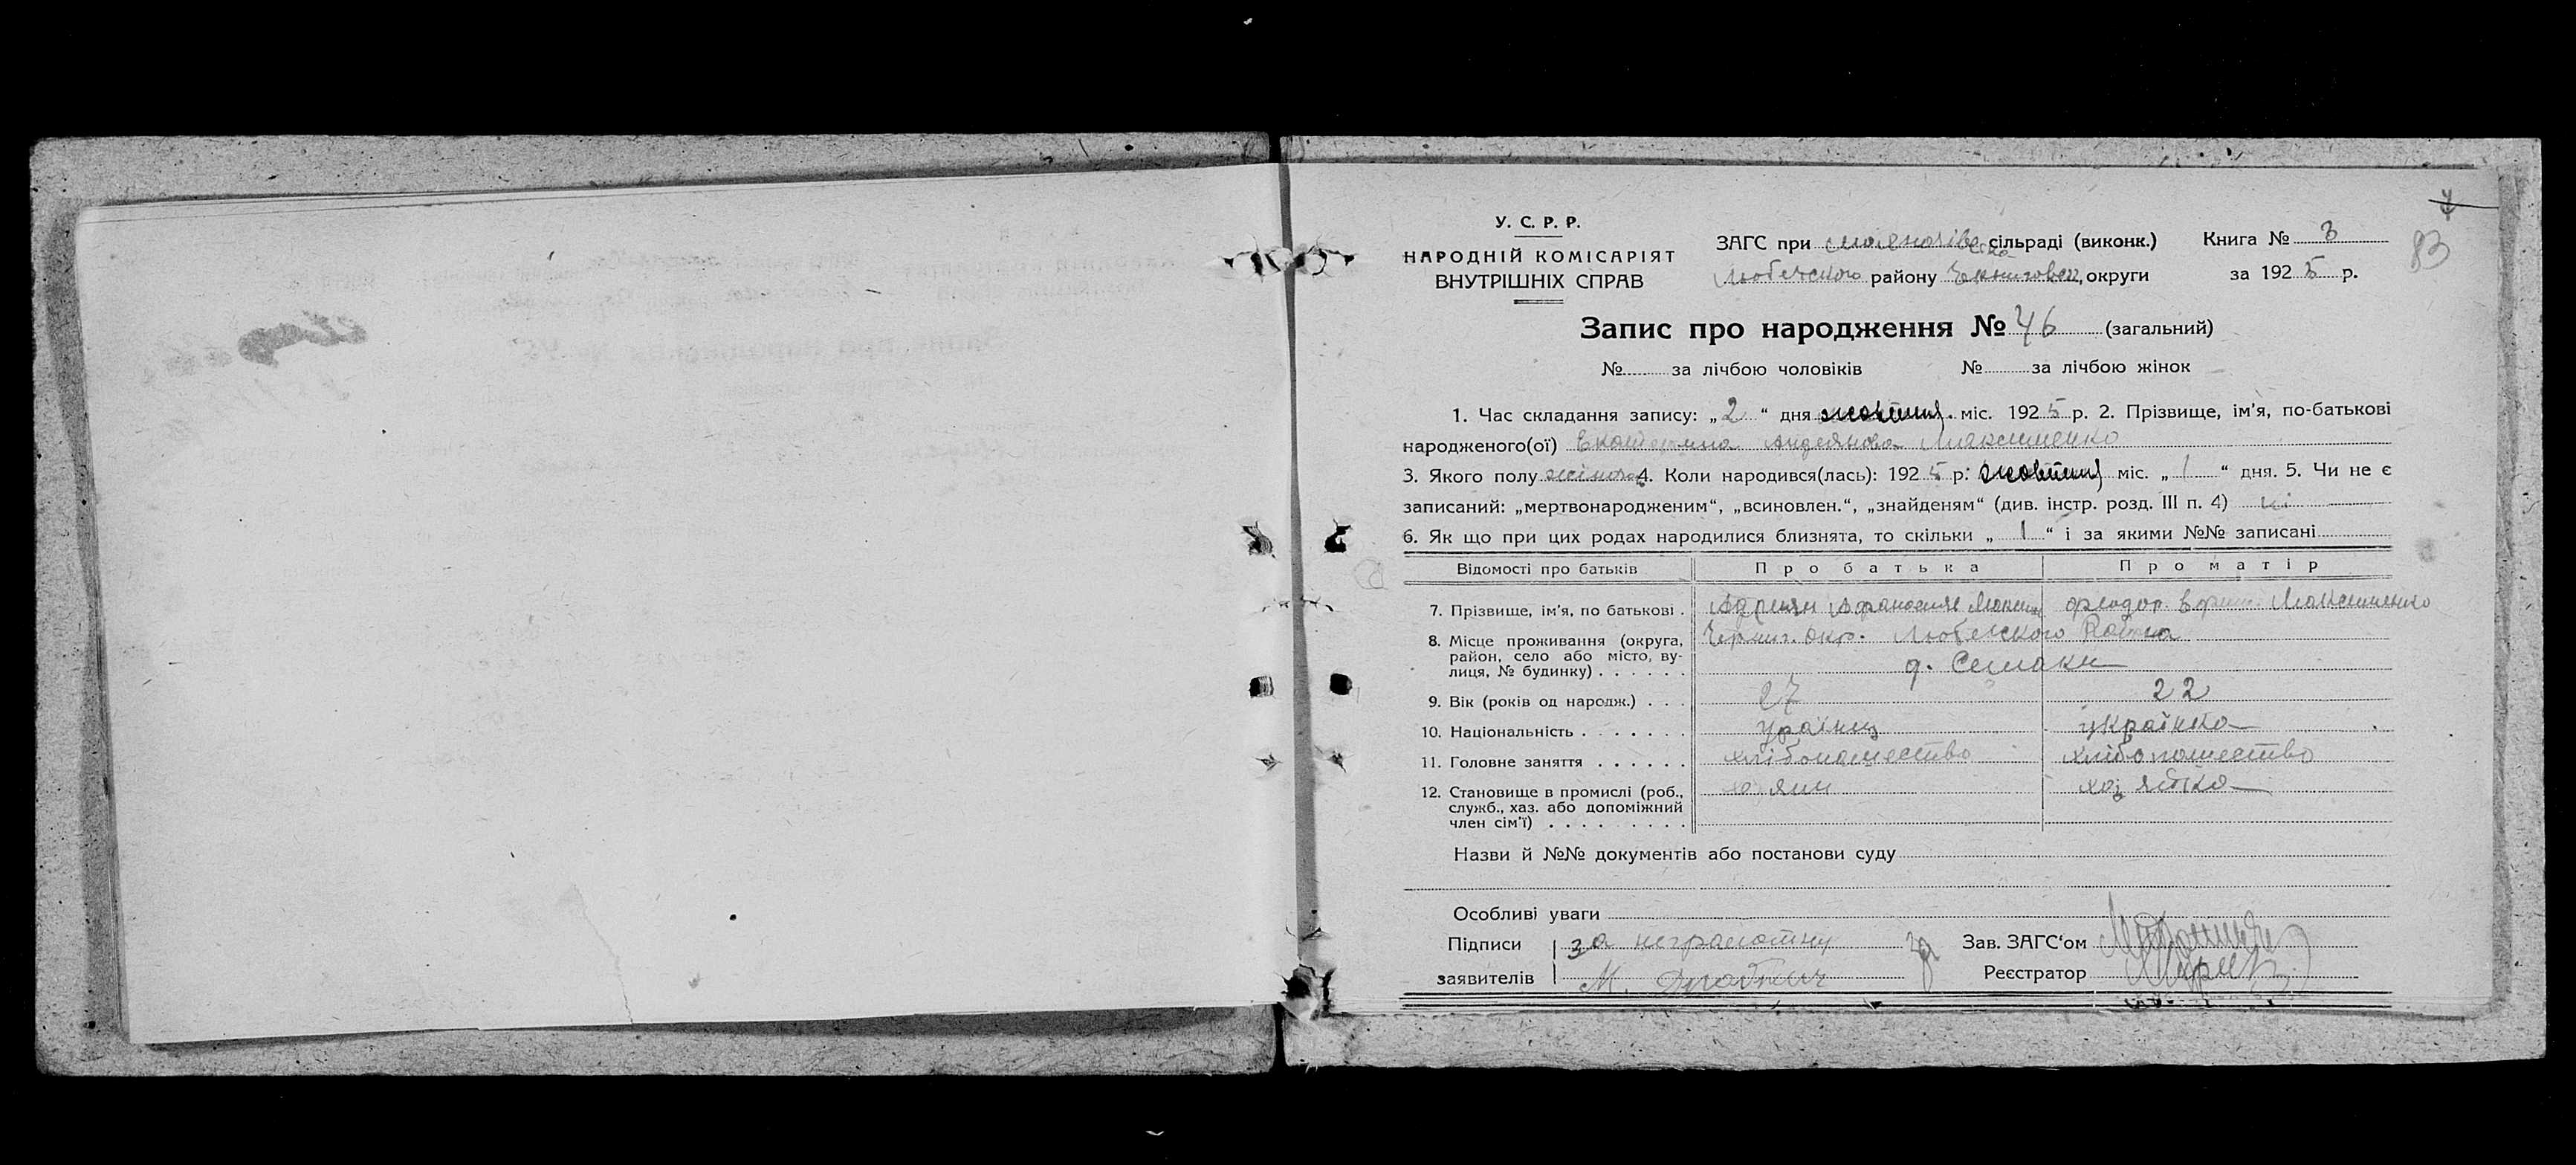 У. С. Р. Р.
НАРОДНІЙ КОМІСАРІЯТ
ВНУТРІШНІХ СПРАВ
ЗАГС при сільраді (виконк.) Книга № 3
Любечского району округи за 1925 р.
83
Запис про народження № 46 (загальний)
№ за лічбою чоловіків № за лічбою жінок
1. Час складання запису: „ 2 “ дня жовтня міс. 1925 р. 2. Прізвище, ім'я, по-батькові
народженого(ої) Екатерина Андреянова Максименко
3. Якого полу жіноча 4. Коли народився(лась): 1925 р: жовтня міс. „ 1 “ дня. 5. Чи не є
записаний: „мертвонародженим“, „всиновлен.“, „знайденям“ (див. інстр. розд. III п. 4) ні
6. Як що при цих родах народилися близнята, то скільки „ 1 “ і за якими №№ записані
Відомості про батьків Про батька Про матір
7. Прізвище, ім'я, по батькові . Максименко
8. Місце проживання (округа, Черниг. окр. Любечского Района
район, село або місто, ву-
лиця, № будинку) . . . . . . д. Семаки
9. Вік (років од народж.) . . . 27 22
10. Національність . . . . . . . українка
11. Головне заняття . . . . . . хлібопашество хлібопашество
12. Становище в промислі (роб., хозяйка
служб., хаз. або допоміжний
член сім'ї) . . . . . . . . .
Назви й №№ документів або постанови суду
Особливі уваги
Підписи за неграмотну Зав. ЗАГС'ом
заявителів М. Реєстратор